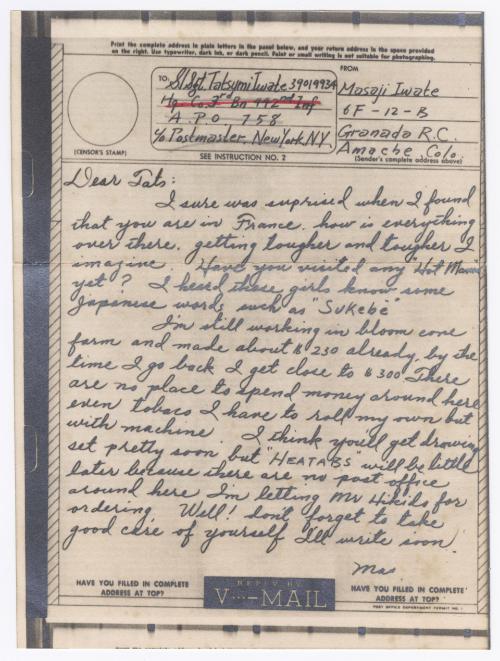 Print the complete address in plain letters in the panel below, and your return address in the space provided
on the right. Use typewriter, dark ink, or dark pencil. Faint or small writing is not suitable for photographing.
TO:
S/Sgt. Tatsumi Iwate 39019934
Hq. Co. 3rd Bn 442nd Inf
A.P.O. 758
c/o Postmaster, New York, N.Y.
(CENSOR'S STAMP)
SEE INSTRUCTION NO. 2
FROM
Masaji Iwate
6F-12-B
Granada R.C.
Amache, Colo.
(Sender's complete address above)
Dear Tats:
I sure was suprised when I found
that you are in France. how is everything
over there. getting tougher and tougher I
imagine. Have you visited any "Hot Mama"
yet? I heed these girls know some
Japanese words such as "Sukebe"
I'm still working in bloom cone
farm and made about $230 already, by the
time I go back I get close to $300 There
are no place to spend money around here
even tobaco I have to roll my own but
with machine. I think you'll get drowing
set pretty soon but "HEATABS" will be little
later because there are no post office
around here I'm letting Mr Hikido for
ordering. Well! don't forget to take
good care of yourself I'll write soon.
Mas
HAVE YOU FILLED IN COMPLETE
ADDRESS AT TOP?
REPLY BY
V···—MAIL
HAVE YOU FILLED IN COMPLETE
ADDRESS AT TOP?
POST OFFICE DEPARTMENT PERMIT NO. 1